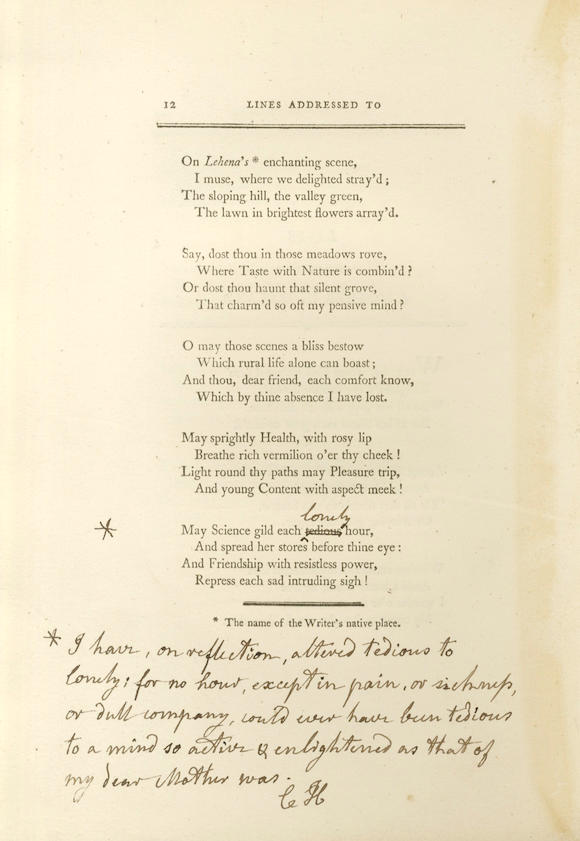 12 LINES ADDRESSED TO
On Lehena's * enchanting scene,
I muse, where we delighted stray'd ;
The sloping hill, the valley green,
The lawn in brightest flowers array'd.
Say, dost thou in those meadows rove,
Where Taste with Nature is combin'd ?
Or dost thou haunt that silent grove,
That charm'd so oft my pensive mind ?
O may those scenes a bliss bestow
Which rural life alone can boast ;
And thou, dear friend, each comfort know,
Which by thine absence I have lost.
May sprightly Health, with rosy lip
Breathe rich vermilion o'er thy cheek !
Light round thy paths may Pleasure trip,
And young Content with aspect meek !
lonely
* May Science gild each tedious hour,
And spread her stores before thine eye :
And Friendship with resistless power,
Repress each sad intruding sigh !
* The name of the Writer's native place.
* I have, on reflection, altered tedious to
lonely; for no hour, except in pain, or sickness,
or dull company, could ever have been tedious
to a mind so active & enlightened as that of
my dear Mother was.
CH